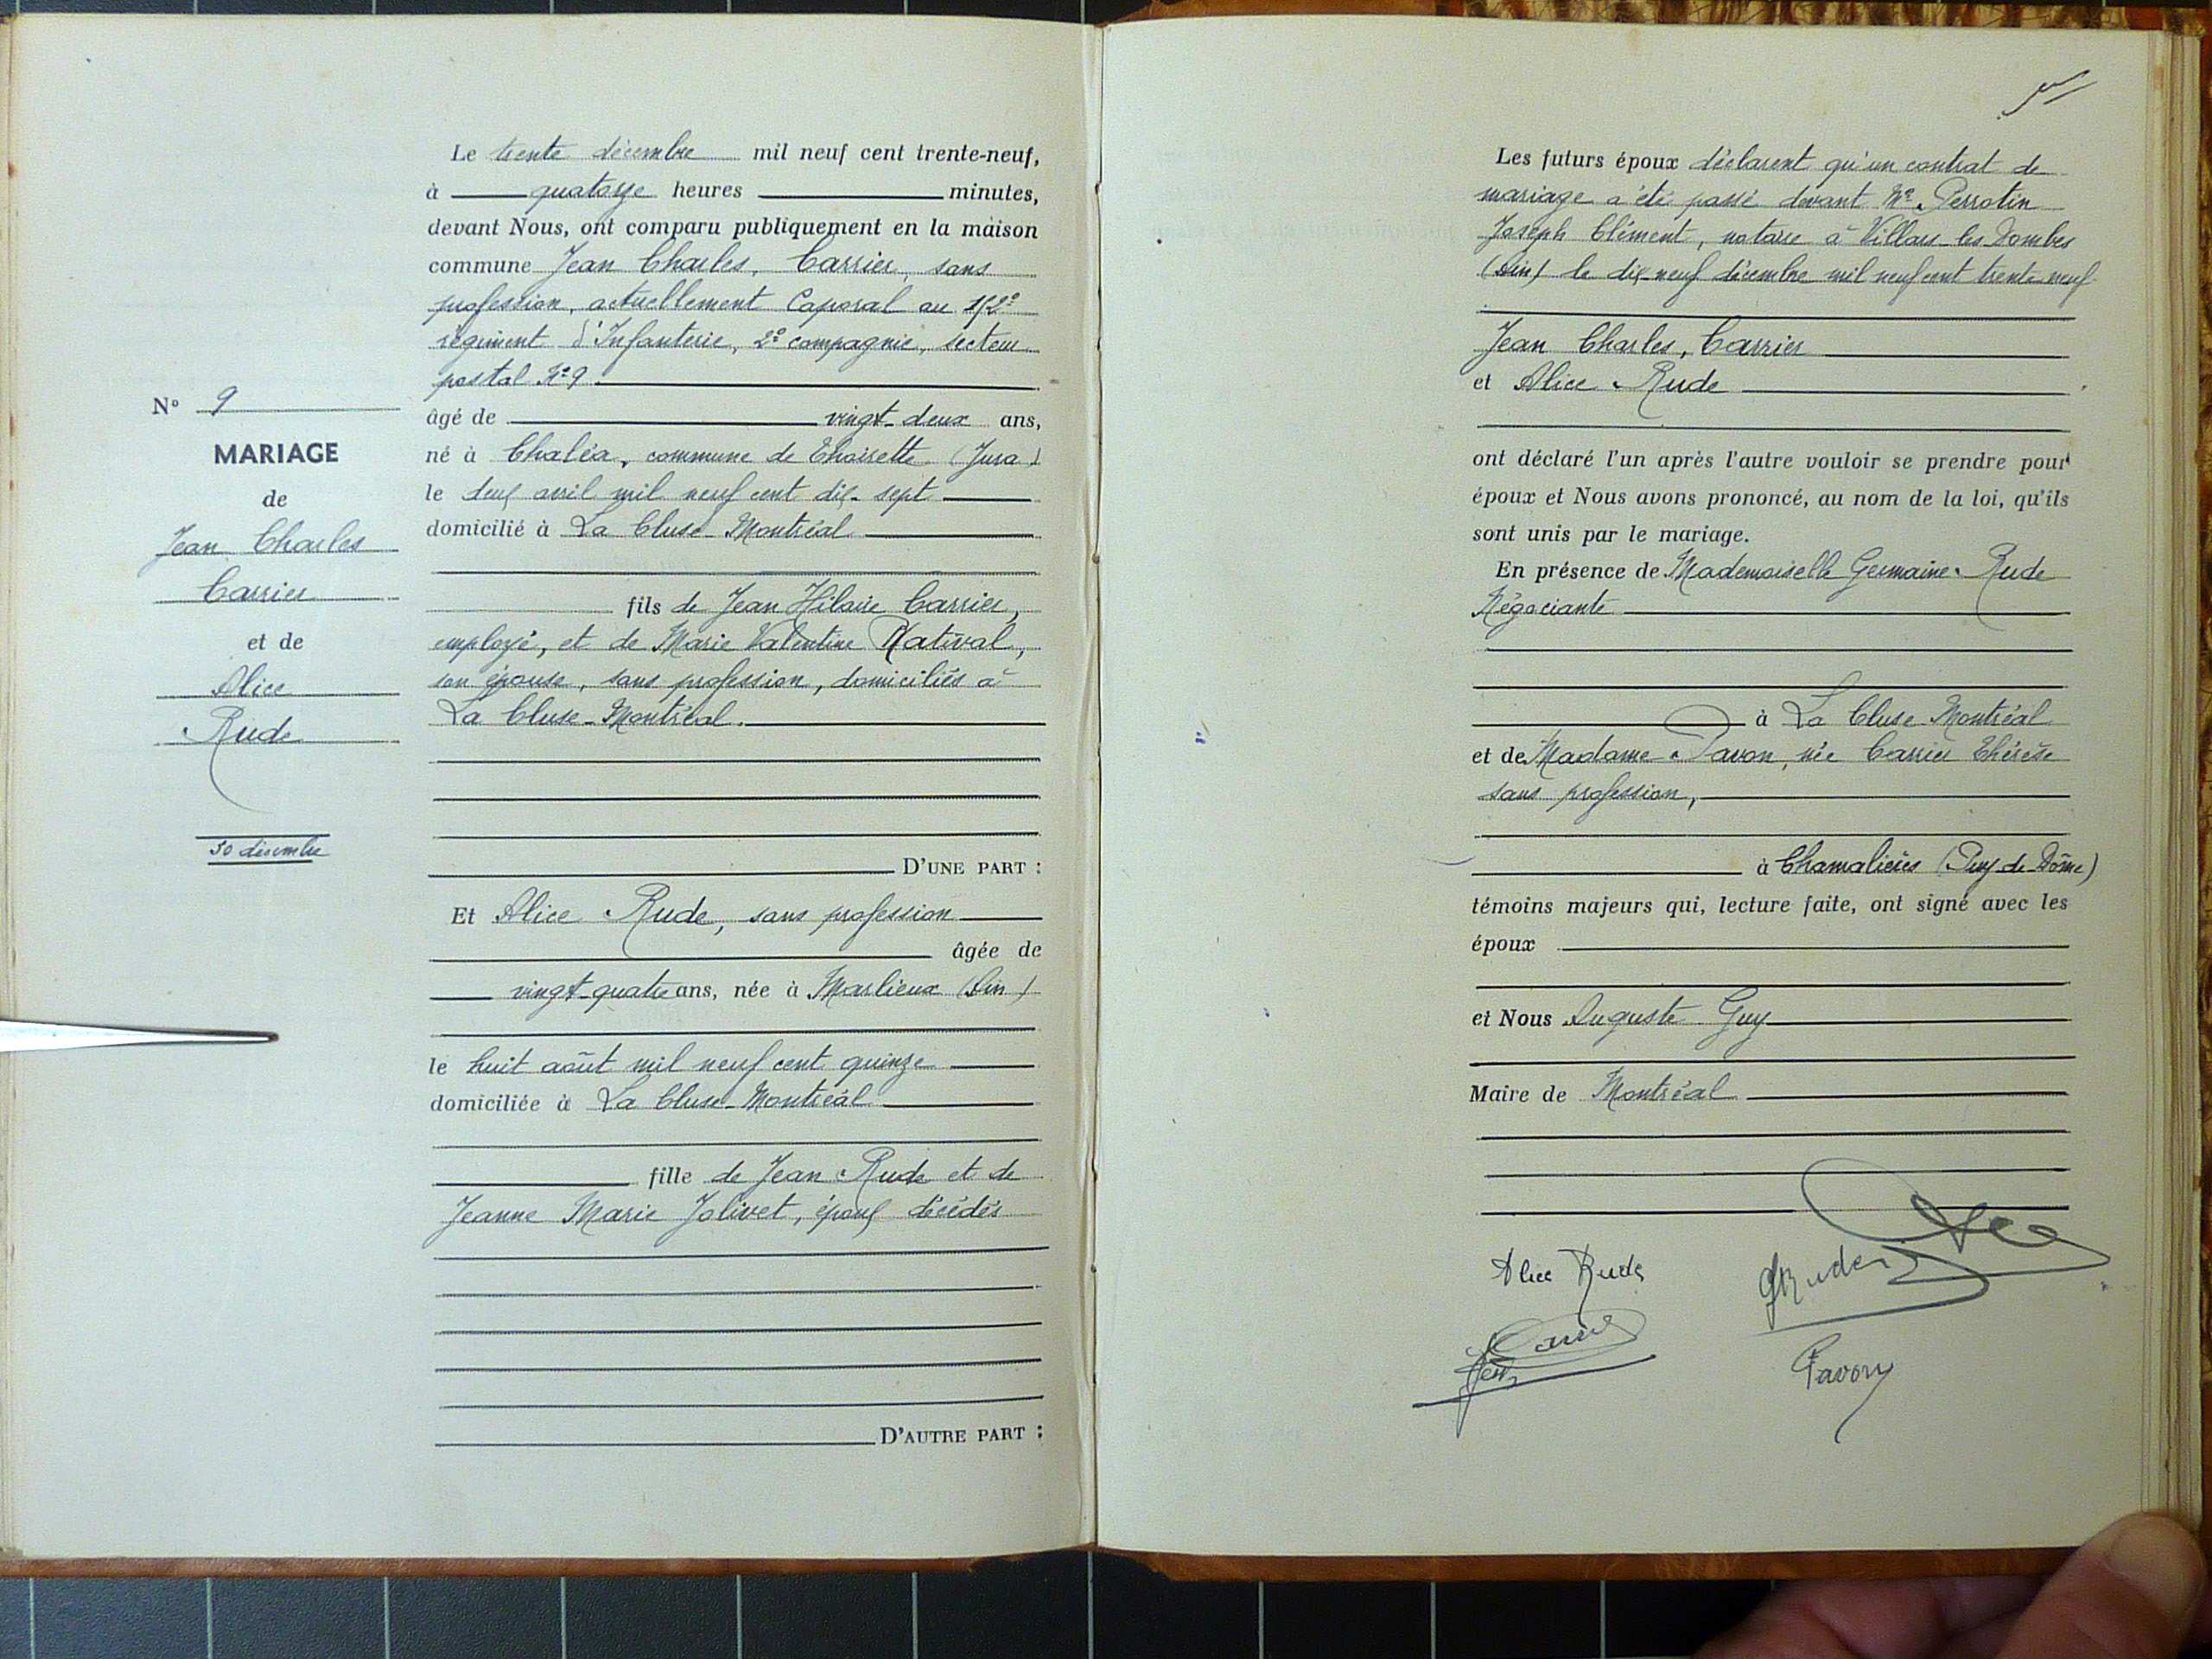 N° 9
MARIAGE
de
Jean Charles
Carrier
et de
Alice
Rude
30 décembre
Le trente décembre mil neuf cent trente-neuf,
à quatorze heures minutes,
devant Nous, ont comparu publiquement en la maison
commune Jean Charles, Carrier, sans
profession, actuellement Caporal au
régiment d'Infanterie, 2e compagnie, secteur
postal N° 9
âgé de vingt-deux ans,
né à Chaléa, commune de Thoirette (Jura)
le deux avril mil neuf cent dix-sept
domicilié à La Cluse-Montréal
fils de Jean Hilaire Carrier,
employé, et de Marie Valentine Nativel,
son épouse, sans profession, domiciliés à
La Cluse-Montréal.
D'UNE PART :
Et Alice Rude, sans profession
âgée de
vingt-quatre ans, née à Marlieux (Ain)
le huit août mil neuf cent quinze
domiciliée à La Cluse-Montréal
fille de Jean Rude et de
Jeanne Marie Jolivet, époux décédés
D'AUTRE PART :
Les futurs époux déclarent qu'un contrat de
mariage a été passé devant Me Perrotin
Joseph Clément, notaire à Villars-les-Dombes
(Ain) le dix-neuf décembre mil neuf cent trente-neuf
Jean Charles, Carrier
et Alice Rude
ont déclaré l'un après l'autre vouloir se prendre pour
époux et Nous avons prononcé, au nom de la loi, qu'ils
sont unis par le mariage.
En présence de Mademoiselle Germaine Rude
Négociante
à La Cluse-Montréal
et de Madame Pavon, née Carrier Thérèse
sans profession,
à Chamalières (Puy-de-Dôme)
témoins majeurs qui, lecture faite, ont signé avec les
époux
et Nous Auguste Guy
Maire de Montréal
Alice Rude
GRude